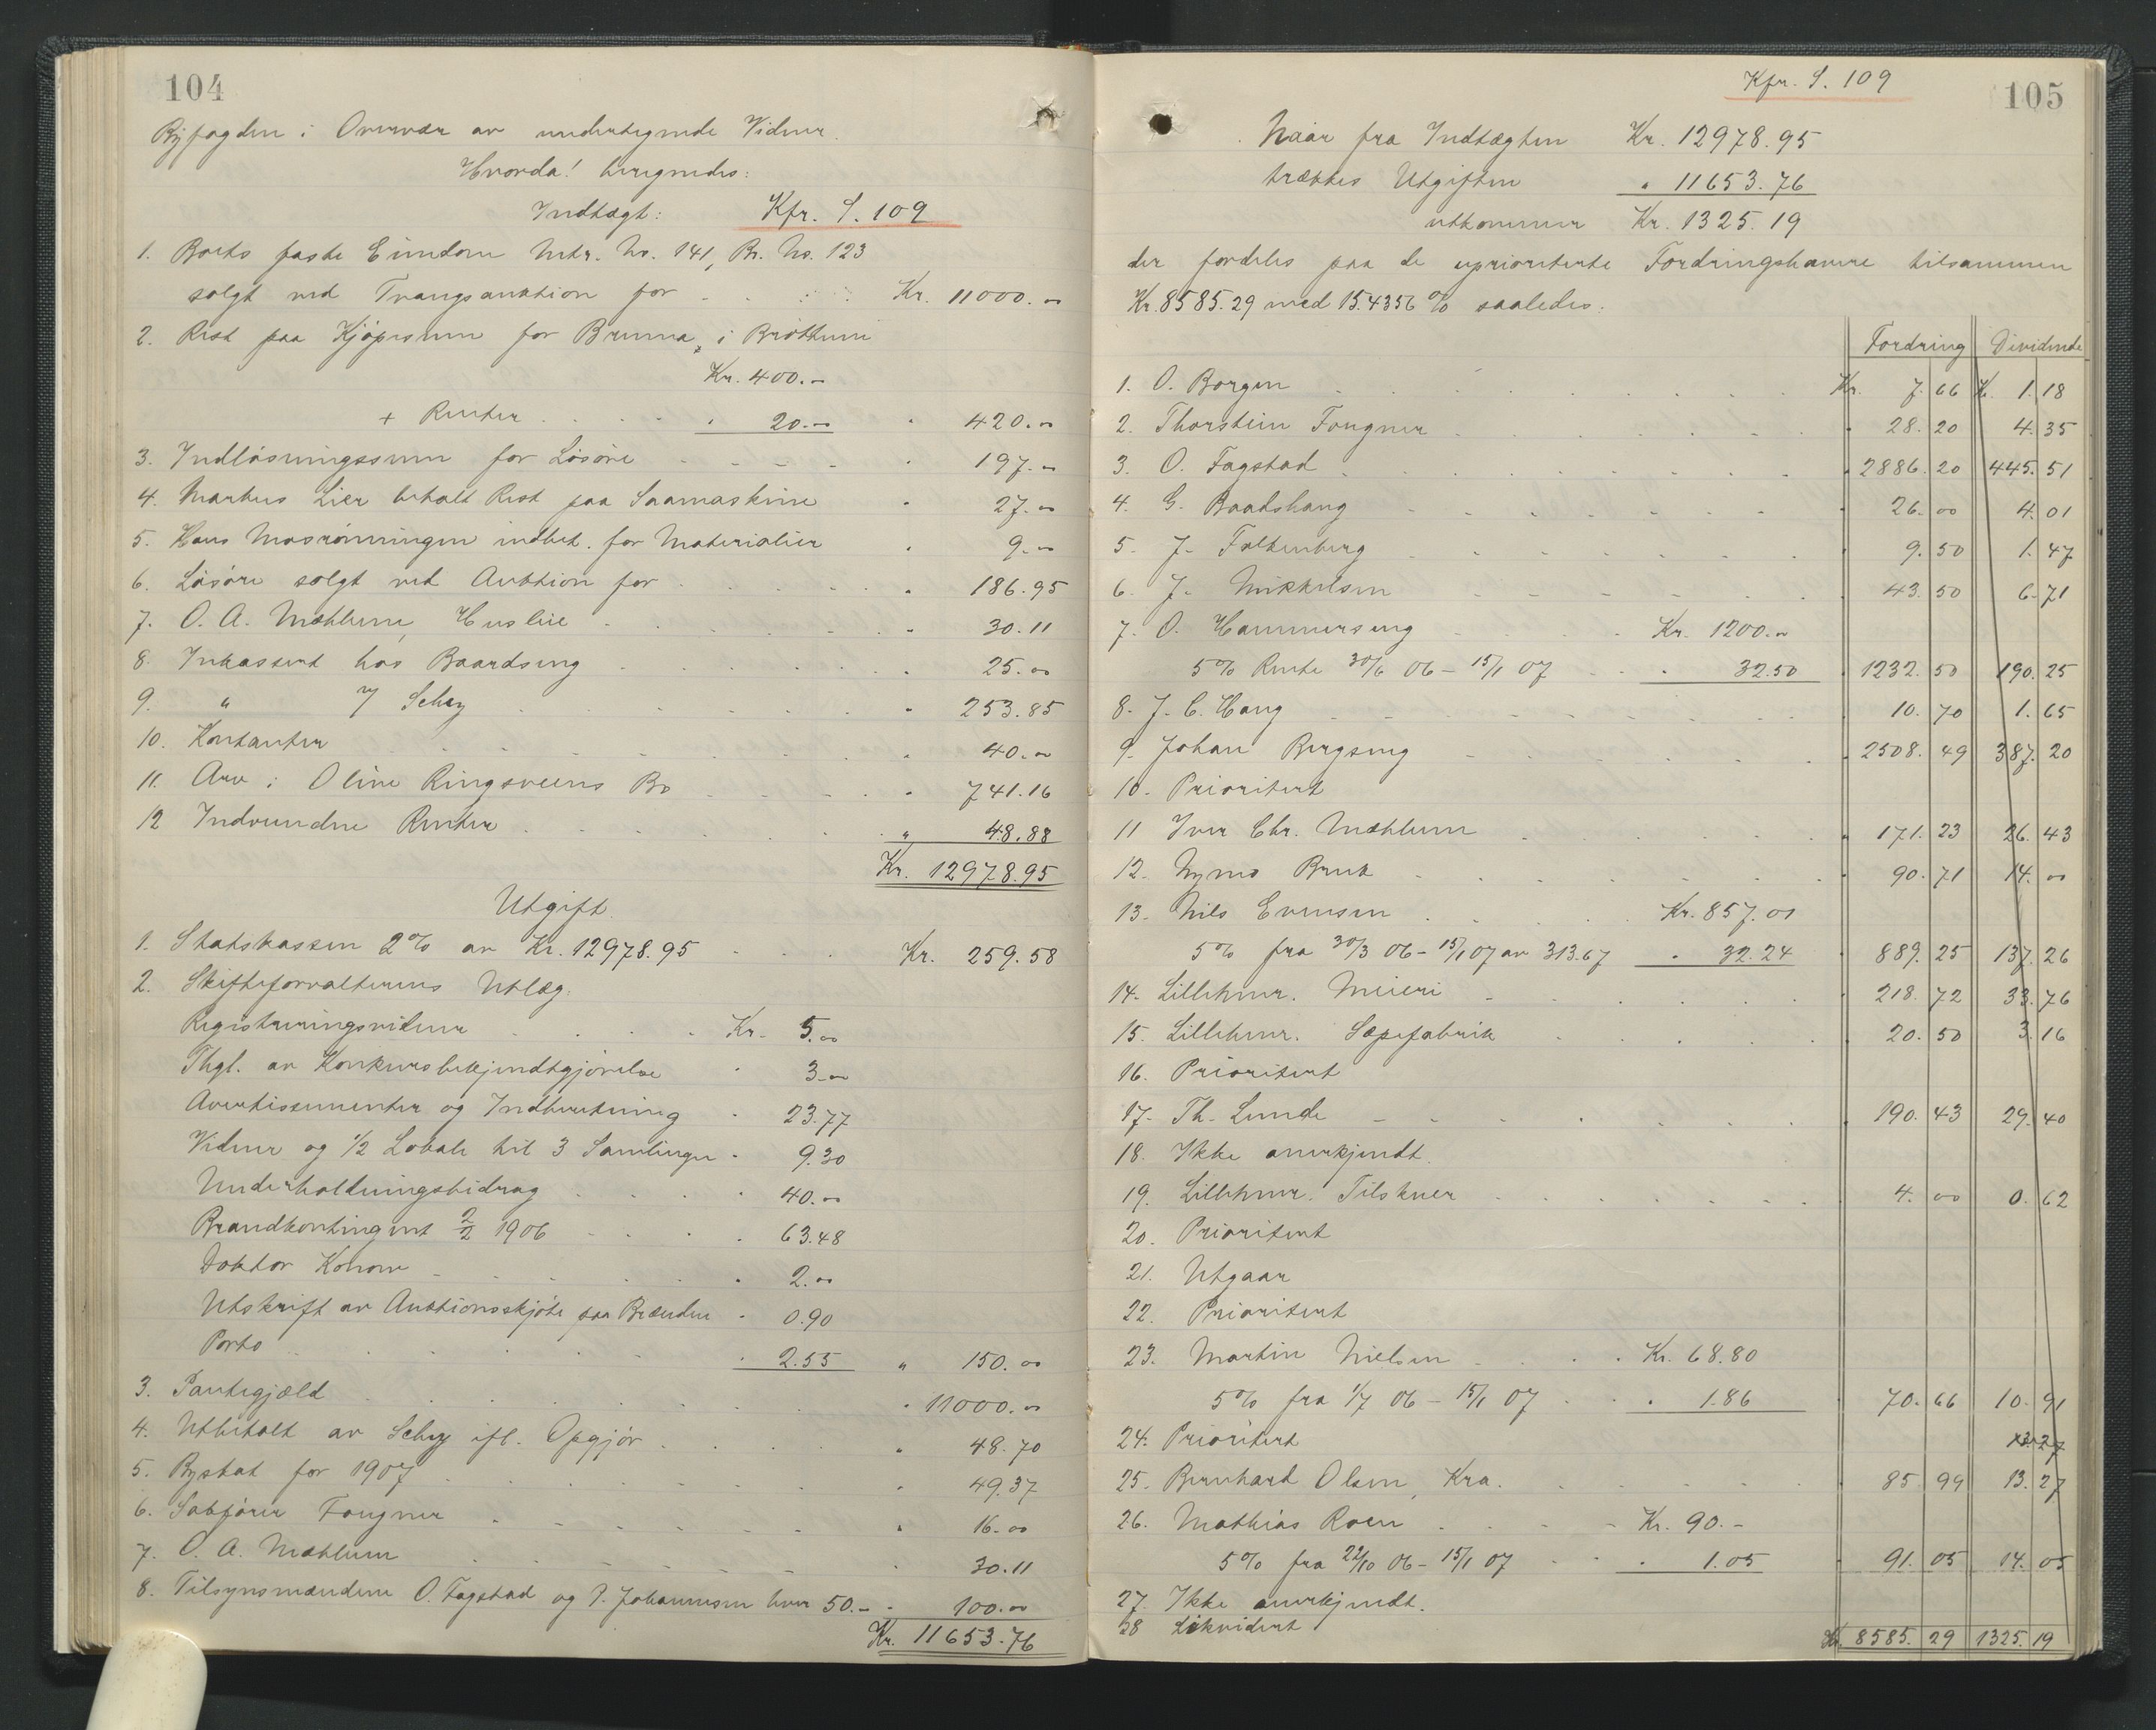 104
Byfogden i Overvær av undertegnede Vidner.
Hvorda! beregnedes:
Indtægt: Kfr. S. 109
1. Boets faste Eiendom Mtr. No. 141, Br. No. 123
solgt ved Tvangsauktion for Kr. 11000.00
2. Rest paa Kjøpesum for Bruma i Brøttum
Kr. 400.00
+ Renter " 20.00 " 420.00
3. Indløsningssum for Løsøre " 197.00
4. Markus Lier betalt Rest paa Saamaskine " 27.00
5. Hans Mosrønningen indbet. for Materialier " 9.00
6. Løsøre solgt ved Auktion for " 186.95
7. O. A. Mæhlum, Husleie " 30.11
8. Inkassert hos Baardseng " 25.00
9. " Schey " 253.85
10. Kontanter " 40.00
11. Arv i Oline Ringsveens Bo " 741.16
12 Indvundne Renter " 48.88
Kr. 12978.95
Utgift.
1. Statskassen 2% av Kr. 12978.95 Kr. 259.58
2. Skifteforvalterens Utlæg:
Registreringsvidner Kr. 5.00
Thgl. av Konkursbekjendtgjørelse " 3.00
Avertissementer og Indberetning " 23.77
Vidner og 1/2 Lokale til 3 Samlinger " 9.30
Underholdningsbidrag " 40.00
Brandkontingent 2/2 1906 " 63.48
Doktor Konow " 2.00
Utskrift av Auktionsskjøte paa Brænden " 0.90
Porto " 2.55 " 150.00
3. Pantegjæld " 11000.00
4. Utbetalt av Schey ifl. Opgjør " 48.70
5. Byskat for 1907 49.37
6. Sakfører Fougner " 16.00
7. O. A. Mæhlum " 30.11
8. Tilsynsmændene O. Fagstad og P. Johannesen hver 50.- " 100.00
Kr. 11653.76
Kfr. S. 109
105
Naar fra Indtægten Kr. 12978.95
trækkes Utgiften " 11653.76
utkommer Kr. 1325.19
der fordeles paa de uprioriterte Fordringshavere tilsammen
Kr. 8585.29 med 15.4356 % saaledes:
Fordring Dividende
1. O. Borgen Kr. 7.66 K. 1.18
2. Thorstein Fougner " 28.20 4.35
3. O. Fagstad " 2886.20 445.51
4. G. Baadshaug " 26.00 4.01
5. J. Falkenberg " 9.50 1.47
6. J. Mikkelsen " 43.50 6.71
7. O. Hammerseng Kr. 1200.00
5% Rente 30/6 06 - 15/1 07 " 32.50 " 1232.50 190.25
8. J. C. Haug " 10.70 1.65
9. Johan Bergseng " 2508.49 387.20
10. Prioritert
11 Iver Chr. Mæhlum " 171.23 26.43
12. Nymo Bruk " 90.71 14.00
13. Nils Evensen Kr. 857.01
5% fra 30/3 06 - 15/1 07 av 313.67 " 32.24 " 889.25 137.26
14. Lillehmr. Meieri " 218.72 33.76
15. Lillehmr. Sæpefabrik " 20.50 3.16
16. Prioritert
17. Th. Lunde " 190.43 29.40
18. Ikke anerkjendt.
19. Lillehmr. Tilskuer " 4.00 0.62
20. Prioritert
21. Utgaar
22. Prioritert
23. Martin Nielsen Kr. 68.80
5% fra 1/7 06 - 15/1 07 " 1.86 " 70.66 10.91
24. Prioritert 13.27
25. Bernhard Olsen, Kra. " 85.99 13.27
26. Mathias Roen Kr. 90.-
5% fra 22/10 06 - 15/1 07 " 1.05 " 91.05 14.05
27. Ikke anerkjendt.
28 Likvidert
Kr. 8585.29 1325.19